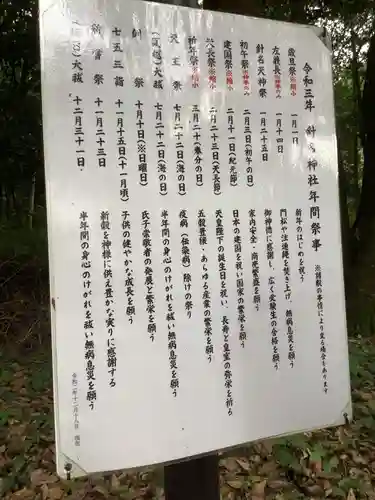 令和三年 針名神社年間祭事 ※諸般の事情により変る場合もあります
歳旦祭※縮小 一月一日 新年のはじめを祝う
左義長※神事のみ 一月十四日 門松や注連縄を焚き上げ、無病息災を願う
針名天神祭 一月二十五日 御神徳に感謝し、広く受験生の合格を願う
初午祭※神事のみ 二月三日(初午の日) 家内安全・商売繁盛を願う
建国祭※縮小 二月十一日(紀元節) 日本の建国を祝い国家の繁栄を願う
天長祭※縮小 二月二十三日(天長節) 天皇陛下の誕生日を祝い、長寿と皇室の弥栄を祈る
祈年祭※縮小 三月二十日(春分の日) 五穀豊穣・あらゆる産業の繁栄を願う
天王祭 七月二十二日(海の日) 疫病(伝染病)除けの祭り
大祓 七月二十二日(海の日) 半年間の身心のけがれを祓い無病息災を願う
例祭 十月十日(※日曜日) 氏子崇敬者の発展と繁栄を願う
七五三詣 十一月十五日(十一月頃) 子供の健やかな成長を願う
新嘗祭 十一月二十三日 新穀を神様に供え豊かな実りに感謝する
大祓 十二月三十一日 半年間の身心のけがれを祓い無病息災を願う
令和二年十二月十八日 掲示